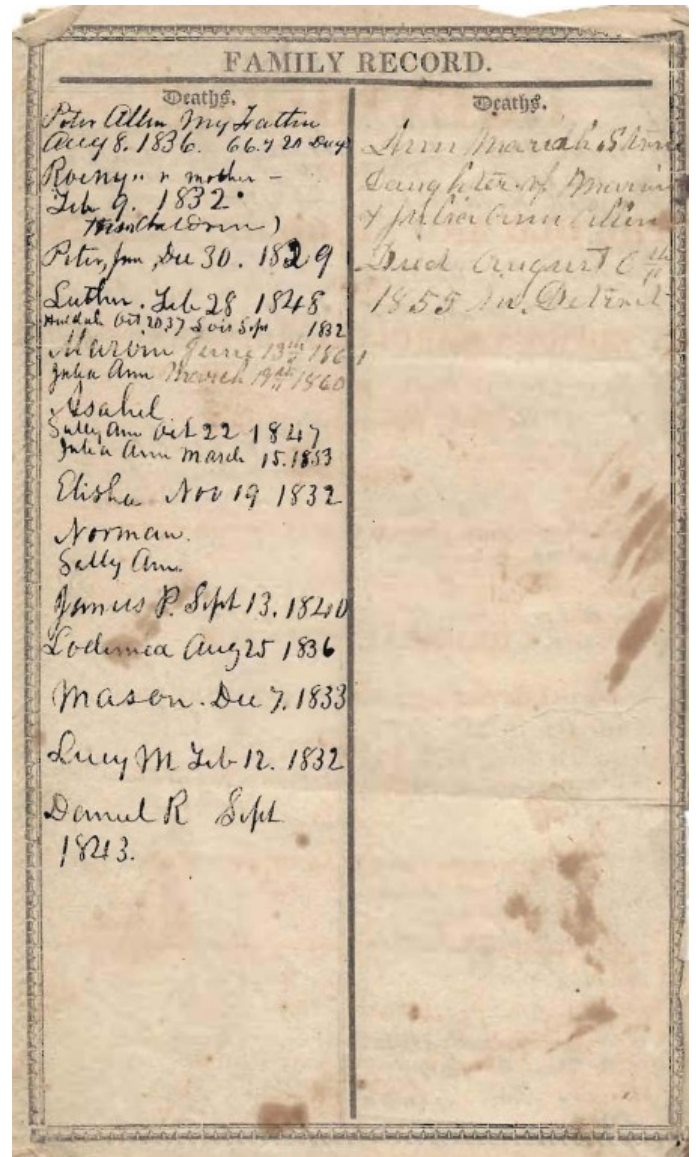 FAMILY RECORD.
Deaths.
Peter Allen My Father
Aug 8. 1836. 66.7 20 Days
" " mother -
Feb 9. 1832.
Peter, Jun, Dec 30. 1829
Luther. Feb 28 1848
Oct 20 37 Sept 1832
Marvin June 13th 1861
Julia Ann March 19th 1860
Asahel
Sally Ann Oct 22 1847
Julia Ann March 15. 1853
Elisha Nov 19 1832
Norman.
Sally Ann.
James P. Sept 13. 1840
Lodemea Aug 25 1836
Mason. Dec 7. 1833
Lucy M Feb 12. 1832
Daniel R Sept
1843.
Deaths.
Ann Mariah
Daughter of Marvin
& Julia Ann Allen
Died August 6th
1855 in. Detroit